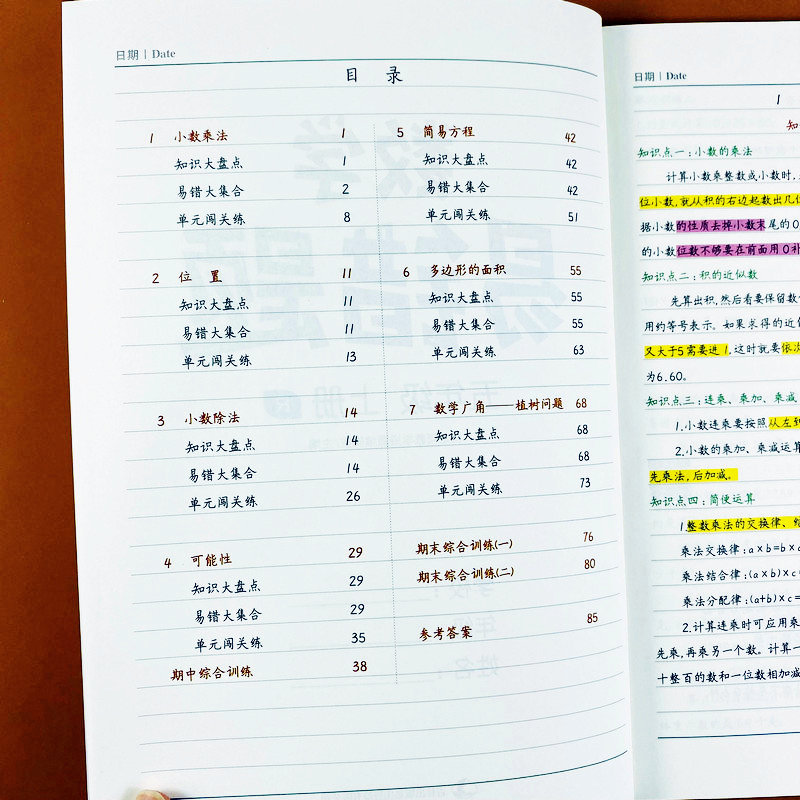 日期 | Date
目 录
1 小数乘法 1
知识大盘点 1
易错大集合 2
单元闯关练 8
2 位 置 11
知识大盘点 11
易错大集合 11
单元闯关练 13
3 小数除法 14
知识大盘点 14
易错大集合 14
单元闯关练 26
4 可能性 29
知识大盘点 29
易错大集合 29
单元闯关练 35
期中综合训练 38
5 简易方程 42
知识大盘点 42
易错大集合 42
单元闯关练 51
6 多边形的面积 55
知识大盘点 55
易错大集合 55
单元闯关练 63
7 数学广角——植树问题 68
知识大盘点 68
易错大集合 68
单元闯关练 73
期末综合训练(一) 76
期末综合训练(二) 80
参考答案 85
日期 | Date
1
知识点一:小数的乘法
计算小数乘整数或小数时,
位小数,就从积的右边起数出几位
据小数的性质去掉小数末尾的0
的小数位数不够要在前面用0补
知识点二:积的近似数
先算出积,然后看要保留数
用约等号表示。如果求得的近
又大于5需要进1,这时就要依次
为6.60。
知识点三:连乘、乘加、乘减
1.小数连乘要按照从左到
2.小数的乘加、乘减运算
先乘法,后加减。
知识点四:简便运算
1.整数乘法的交换律、结
乘法交换律:a×b=b×
乘法结合律:(a×b)×c=
乘法分配律:(a+b)×c=
2.计算连乘时可应用乘
先乘,再乘另一个数。计算一
十整百的数和一位数相加减